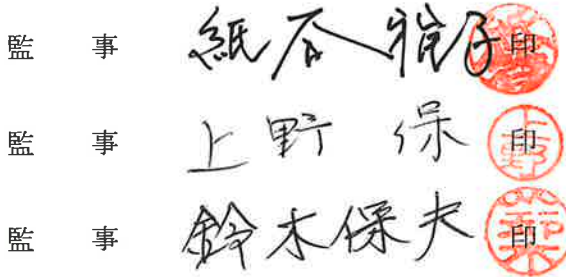 監 事 紙 雅子 印
監 事 上野 保 印
監 事 鈴木保夫 印